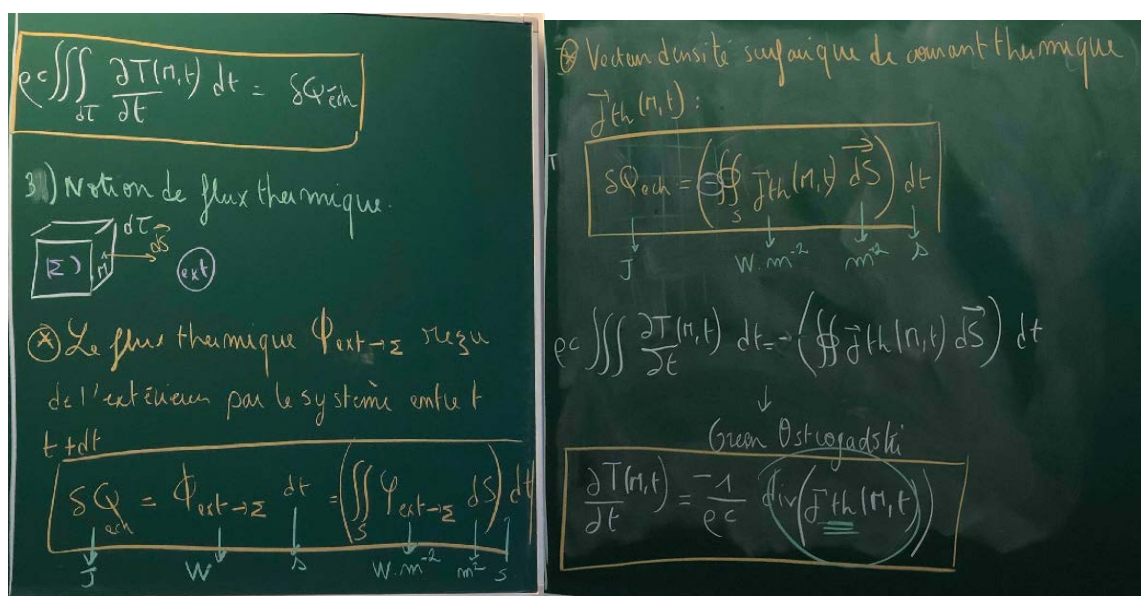 ρc ∭ ∂T(M,t)/∂t dt = δQéch
dτ
3) Notion de flux thermique.
dτ
dS⃗
(Σ) M ext
⊛ Le flux thermique Φext→Σ reçu
de l'extérieur par le système entre t
t+dt
δQech = Φext→Σ dt = (∬S φext→Σ dS) dt
J W s W.m⁻² m² s
⊛ Vecteur densité surfacique de courant thermique
j⃗th(M,t) :
δQech = (-∯S j⃗th(M,t) dS⃗) dt
J W.m⁻² m⁻² s
ρc ∭ ∂T(M,t)/∂t dt = -(∯ j⃗th(M,t) dS⃗) dt
↓
Green Ostrogadski
∂T(M,t)/∂t = -1/ρc div(j⃗th(M,t))